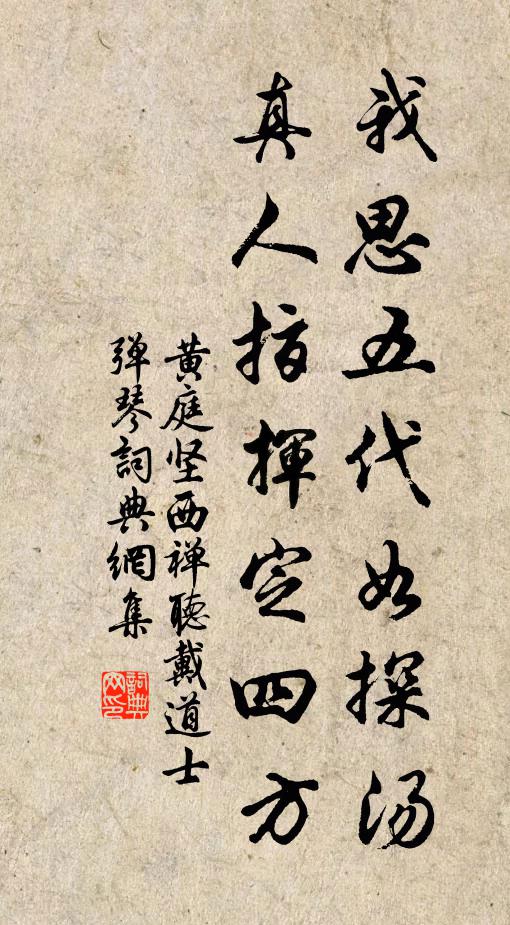 我思五代如探汤
真人指揮定四方
黄庭坚西禅聽戴道士
弹琴詞典網集
詞典網印